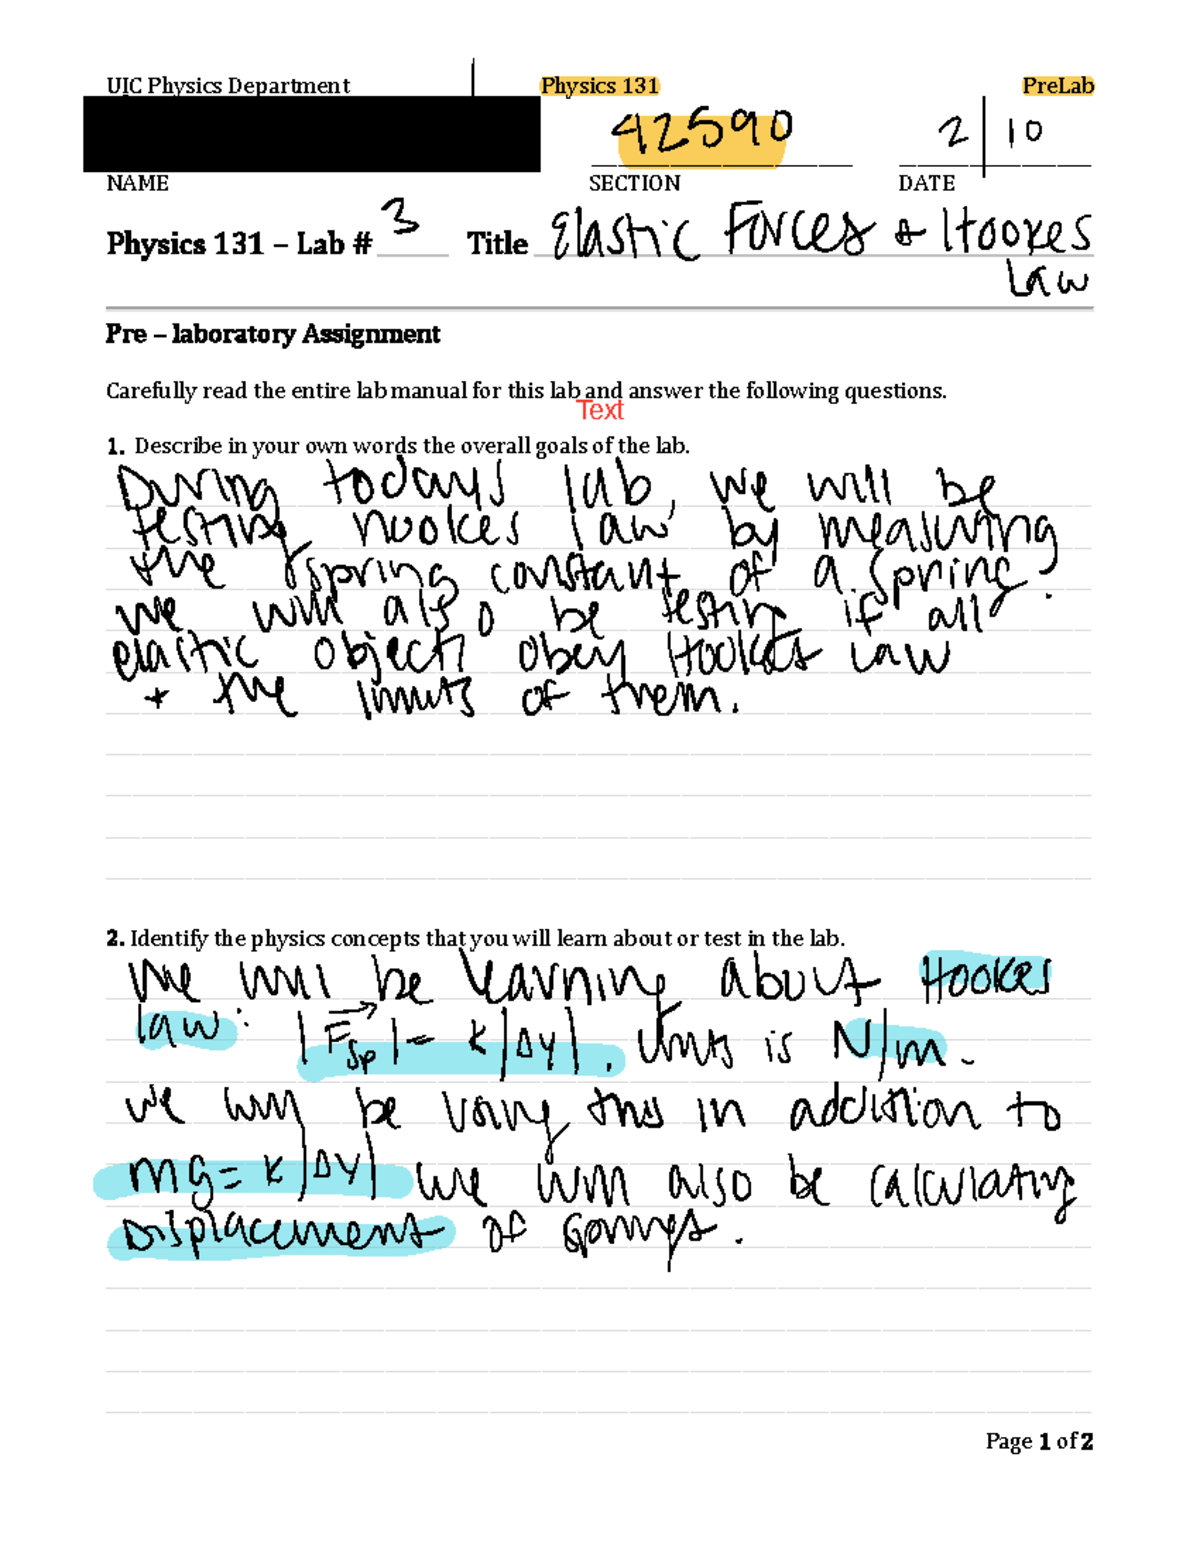 UIC Physics Department Physics 131 PreLab
42590 2/10
NAME SECTION DATE
3
Physics 131 – Lab # Title Elastic Forces & Hookes
Law
Pre – laboratory Assignment
Carefully read the entire lab manual for this lab and answer the following questions.
Text
1. Describe in your own words the overall goals of the lab.
During todays lab, we will be
testing hookes law by measuring
the spring constant of a spring.
We will also be testing if all
elastic objects obey Hookes Law
+ the limits of them.
2. Identify the physics concepts that you will learn about or test in the lab.
We will be learning about Hookes
law: |F⃗sp| = K|ΔY|. Units is N/m.
we will be using this in addition to
mg = K|ΔY| we will also be calculating
Displacement of springs.
Page 1 of 2